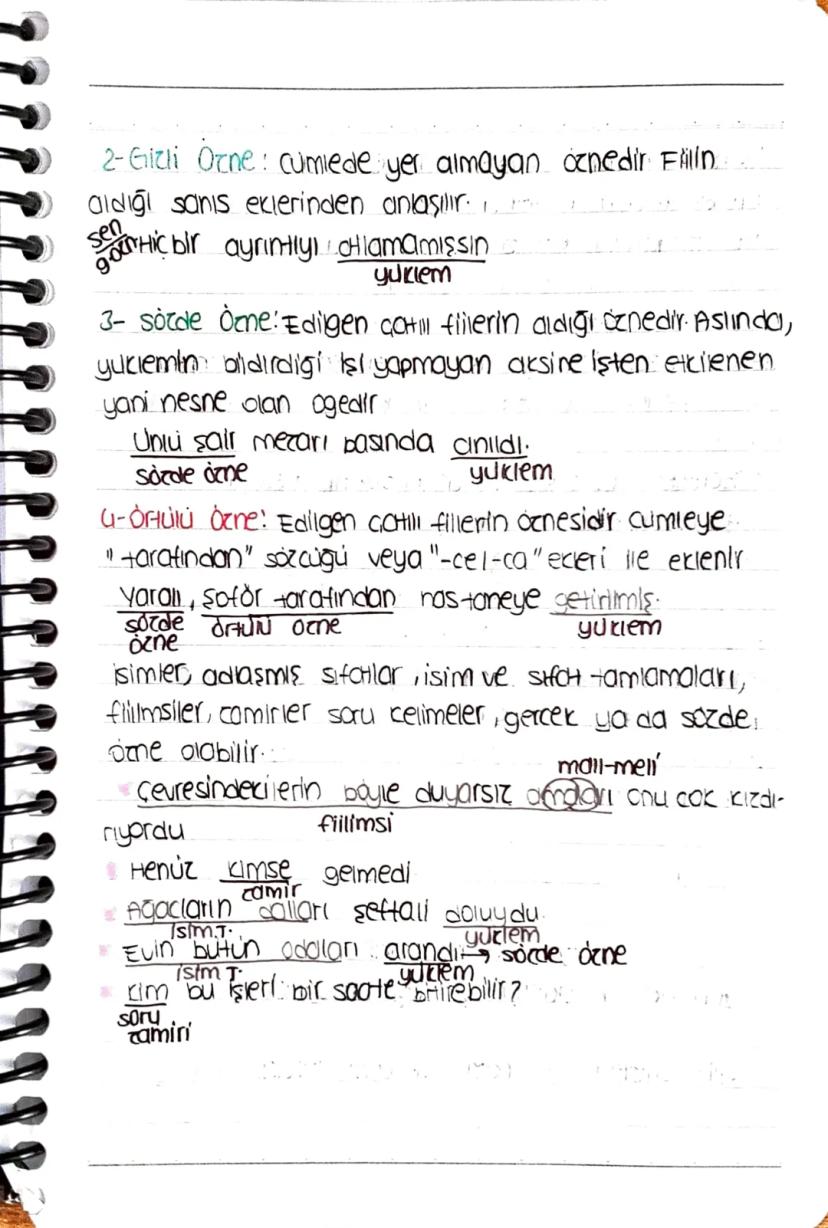 2- Gizli Özne: cümlede yer almayan öznedir Fiilin
aldığı şahıs eklerinden anlaşılır.
sen
gizli Hiç bir ayrıntıyı atlamamışsın
yüklem
3- sözde Özne: Edilgen çatılı fiilerin aldığı öznedir. Aslında,
yüklemin bildirdiği işi yapmayan aksine işten etkilenen
yani nesne olan ögedir
Ünlü şair mezarı başında anıldı.
sözde özne yüklem
4- Örtülü Özne: Edilgen çatılı fiillerin öznesidir cümleye
"tarafından" sözcüğü veya "-ce/-ca" ekleri ile eklenir
Yaralı, şoför tarafından hastaneye getirilmiş.
sözde özne örtülü özne yüklem
isimler, adlaşmış sıfatlar, isim ve sıfat tamlamaları,
fiilimsiler, zamirler soru kelimeler, gerçek ya da sözde
özne olabilir.
mali-meli
Çevresindekilerin böyle duyarsız olmaları onu çok kızdı-
rıyordu fiilimsi
Henüz kimse gelmedi
zamir
Ağaçların dalları şeftali doluydu.
isim.T. yüklem
Evin bütün odaları arandı → sözde özne
isim T. yüklem
kim bu işleri bir saate bitirebilir?
soru
zamiri